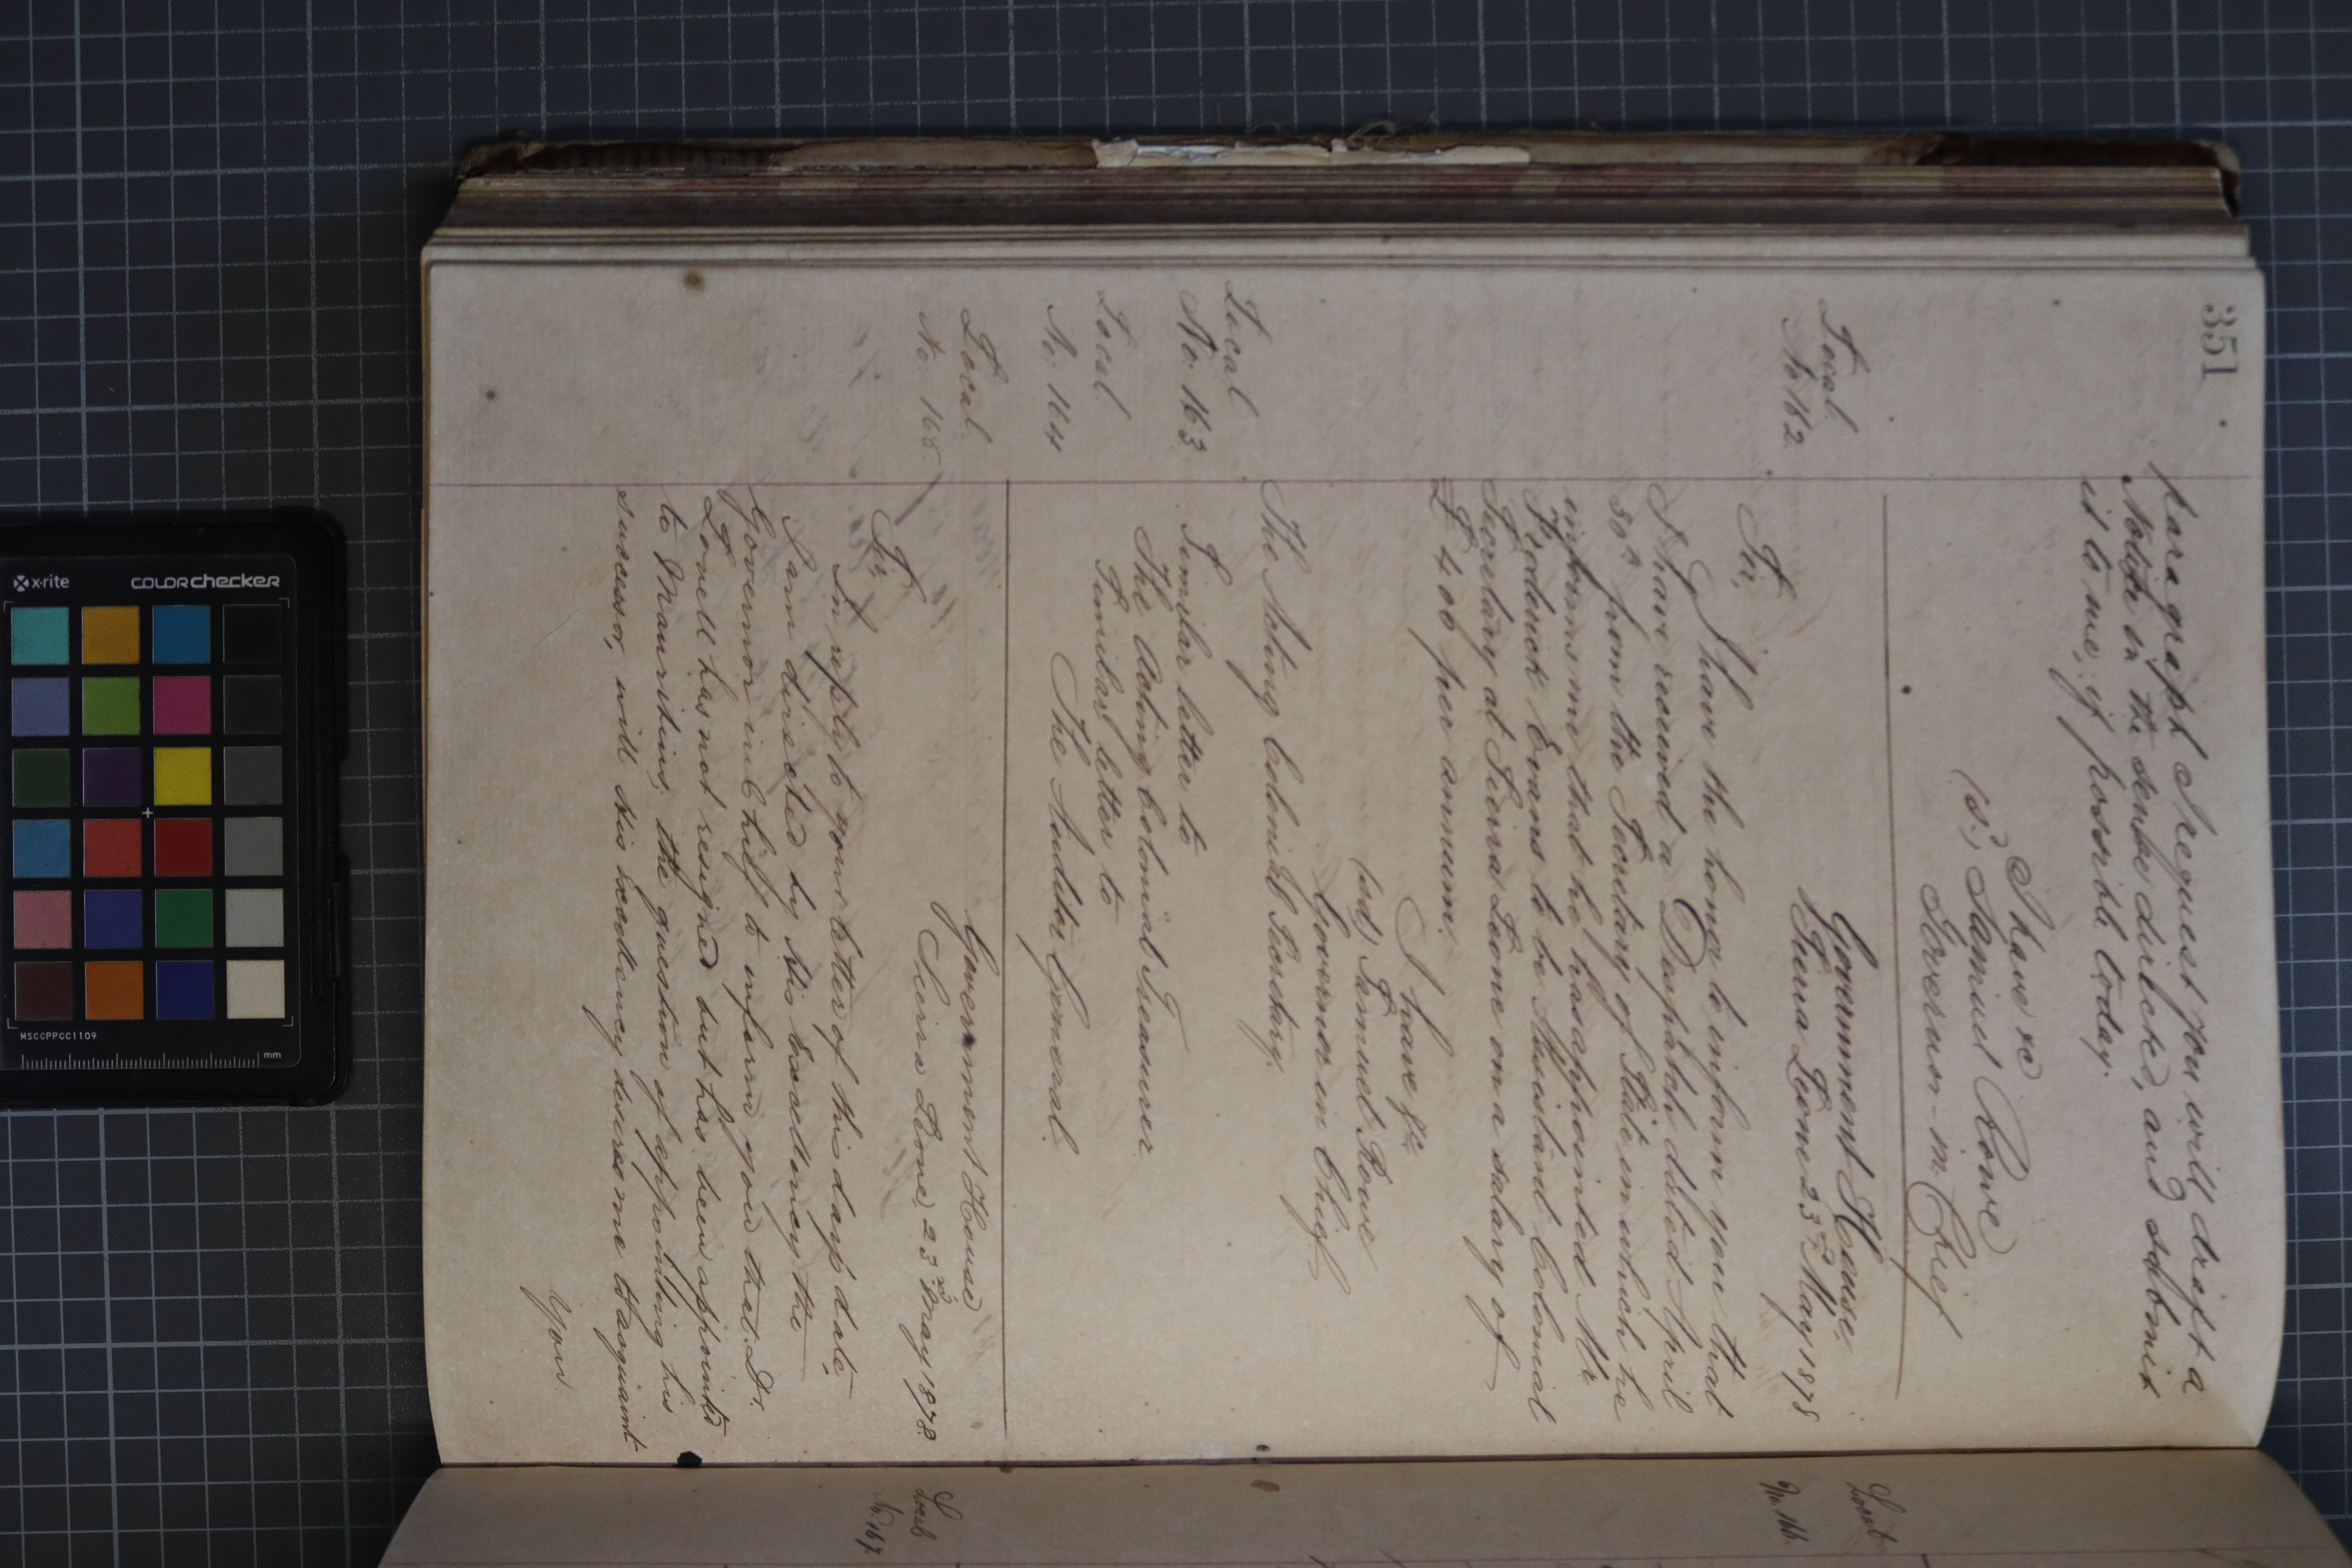 351
paragraph I request you will draft a
Notice in the sense directed, and submit
it to me, if possible today.
I have &c
(sd) Samuel Rowe
Governor-in-Chief
Local
No 162
Government House
Sierra Leone 23rd May 1878
Sir,
I have the honor to inform you that
I have received a Despatch dated April
30th from the Secretary of State in which he
informs me that he has appointed Mr
Frederick Evans to be Assistant Colonial
Secretary at Sierra Leone on a salary of
£400 per annum.
I have &c
(sd) Samuel Rowe
Governor in Chief
The Acting Colonial Secretary.
Local
No. 163
Similar letter to
The Acting Colonial Treasurer
Local
No. 164
Similar letter to
The Auditor General
Local
No. 165
Government House
Sierra Leone, 23rd May 1878
Sir,
In reply to your letter of this day's date,
I am directed by His Excellency the
Governor in Chief to inform you that Dr.
Lovell has not resigned but has been appointed
to Mauritius, the question of appointing his
successor, will His Excellency desires me to acquaint
You
Local
No. 166
Local
No. 167
x-rite
COLORchecker
MSCCPPCC1109
mm